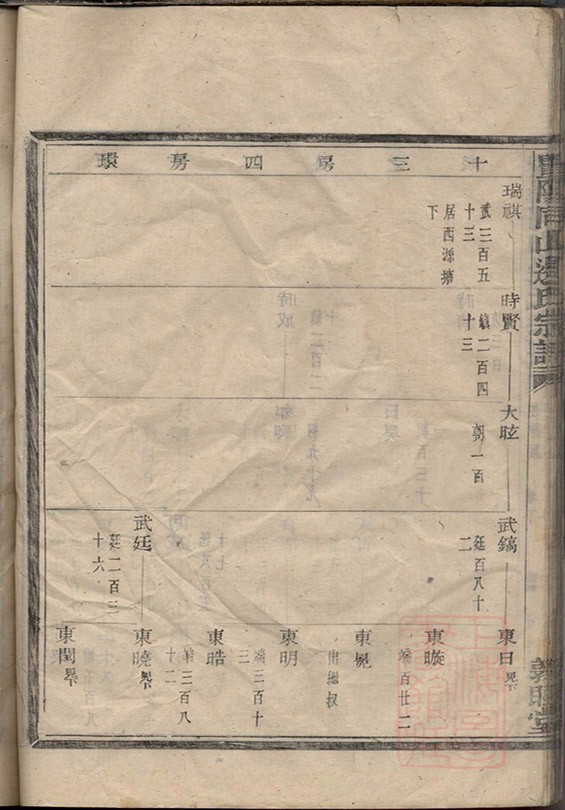 十三房四房環
瑞祺
武三百五
十三
居西源塘
下
時賢
鎮二百四
十三
大昡
朝一百
武鎬
廷百八十
二
武廷
廷二百三
十六
東日
東㬢
端百廿二
東晃
出繼叔
東明
端三百十
三
東晧
端三百八
十二
東曉
東閏
宗譜
敦睦堂